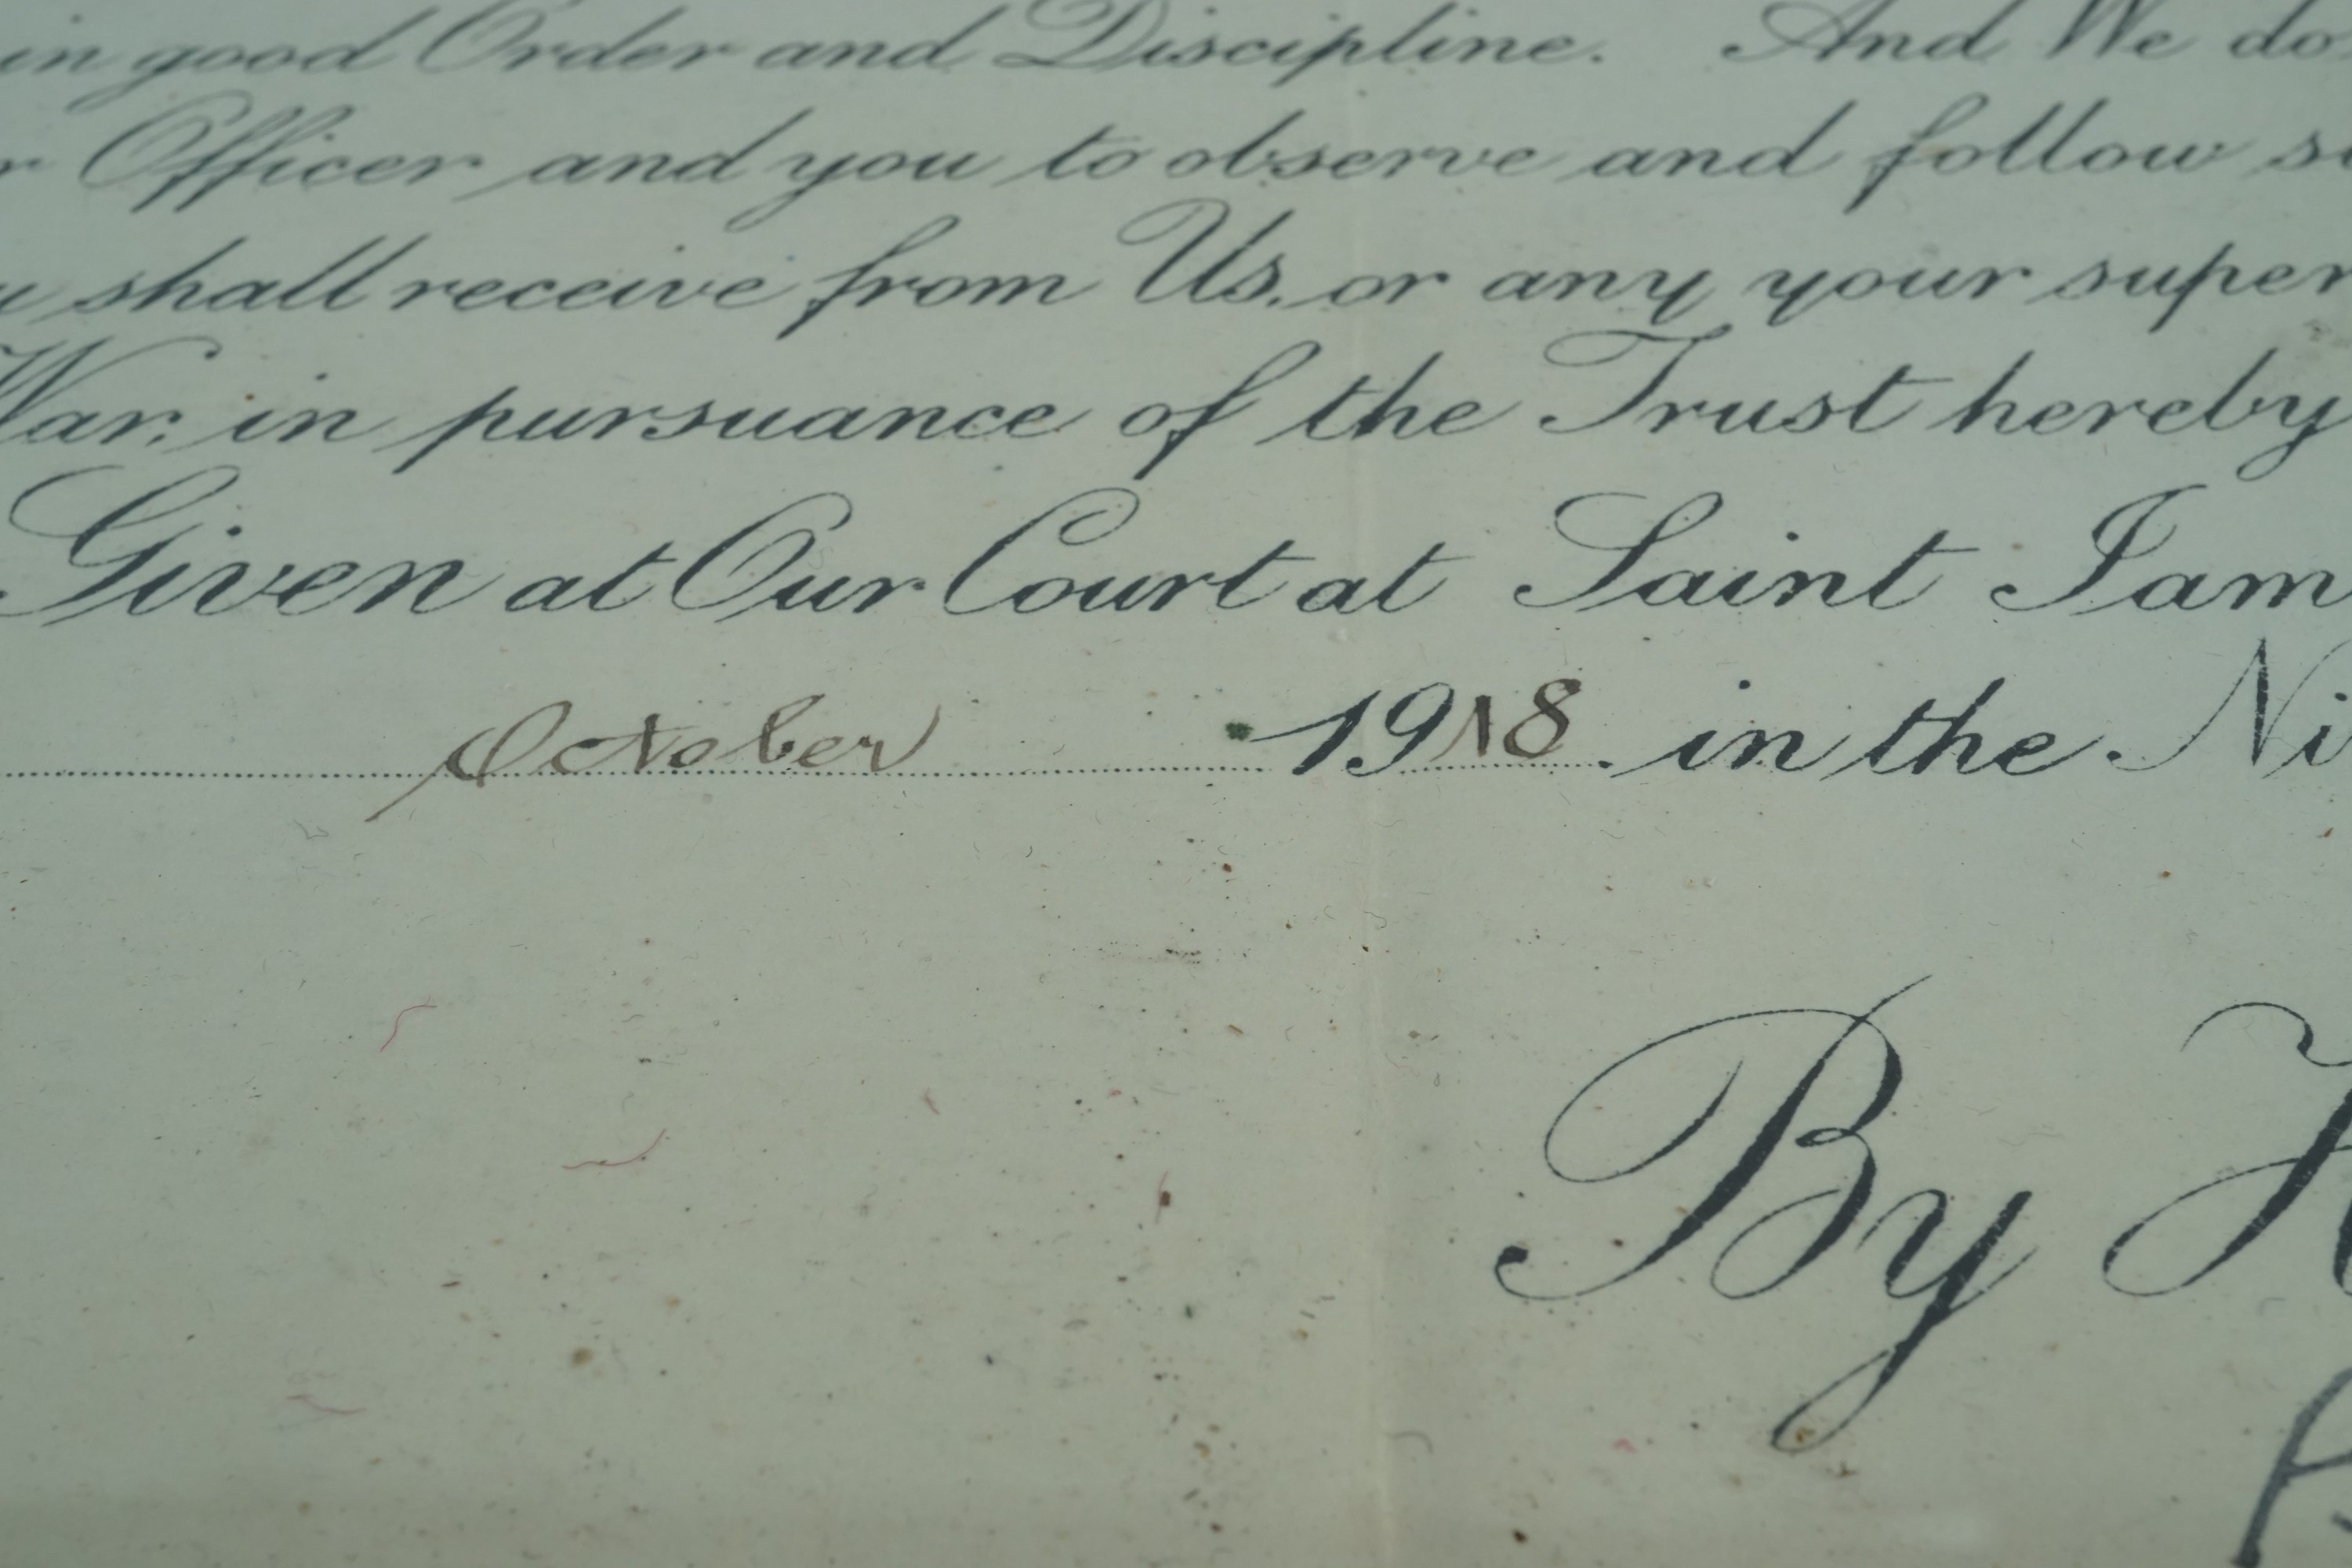 in good Order and Discipline. And We do
Officer and you to observe and follow
shall receive from Us, or any your super
War, in pursuance of the Trust hereby
Given at Our Court at Saint Jam
October 1918. in the Ni
By H